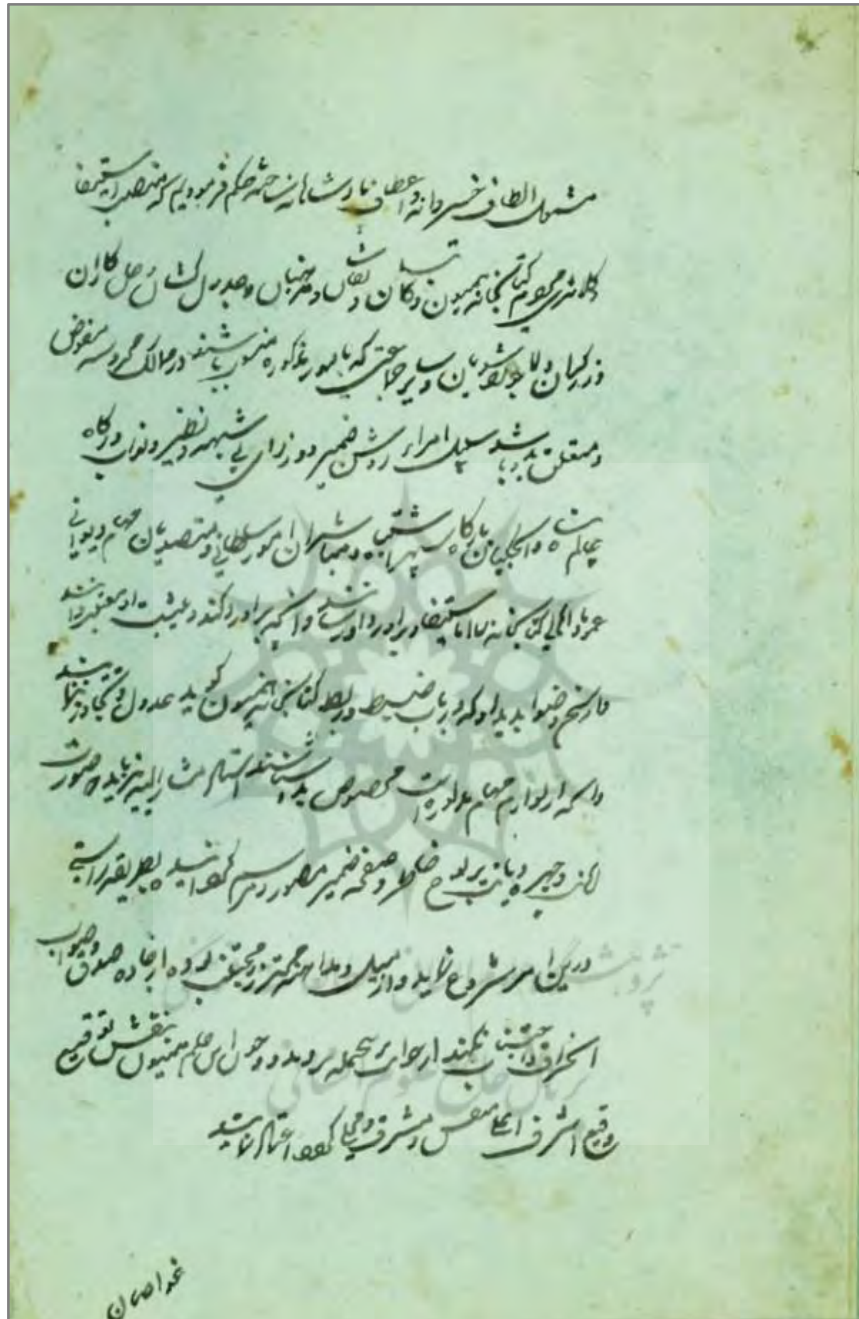 مشمول الطاف خسروانه و اعطاف پادشاهانه ساخته حکم فرمودیم که منصب استیفا
و کلانتری مردم کتابخانه همیون و کاتبان و نقاشان و مذهبان و جدول کشان و حل کاران
و زرکوبان و لاجورد شویان و سایر جماعتی که بامور مذکوره منسوب باشند در ممالک محروسه مفوض
و متعلق بدو باشد سبیل امرای روشن ضمیر و وزرای بی شبهه و نظیر و نواب درگاه
عالم پناه و ایلچیان بارگاه سپهر اشتباه و مباشران امور سلطانی و متصدیان مهام دیوانی
عموما و اهالی کتابخانه را استیفا و برآورد او و آنکه برآورد کند و مثبت او معتبر دانند
و از سخن و صوابدید او که در باب ضبط و ربط کتابخانه همیون گوید عدول و تجاوز ننمایند
و آنچه از لوازم مهام مذکوره است مخصوص بدو شناسند استاد مشار الیه نیز باید که صورت
بر لوح خاطر و صفحه ضمیر مصور و مرتسم گردانیده بطریقه راستی
درین امر شروع نماید و از میل و مداهنه محترز و مجتنب بوده از جاده صدق و صواب
انحراف و اجتناب نکند از جوانب برینجمله بروند و چون این حکم همیون بنقش توقیع
وقیع اشرف اعلا و مشرف و محلا گردد اعتماد نمایند